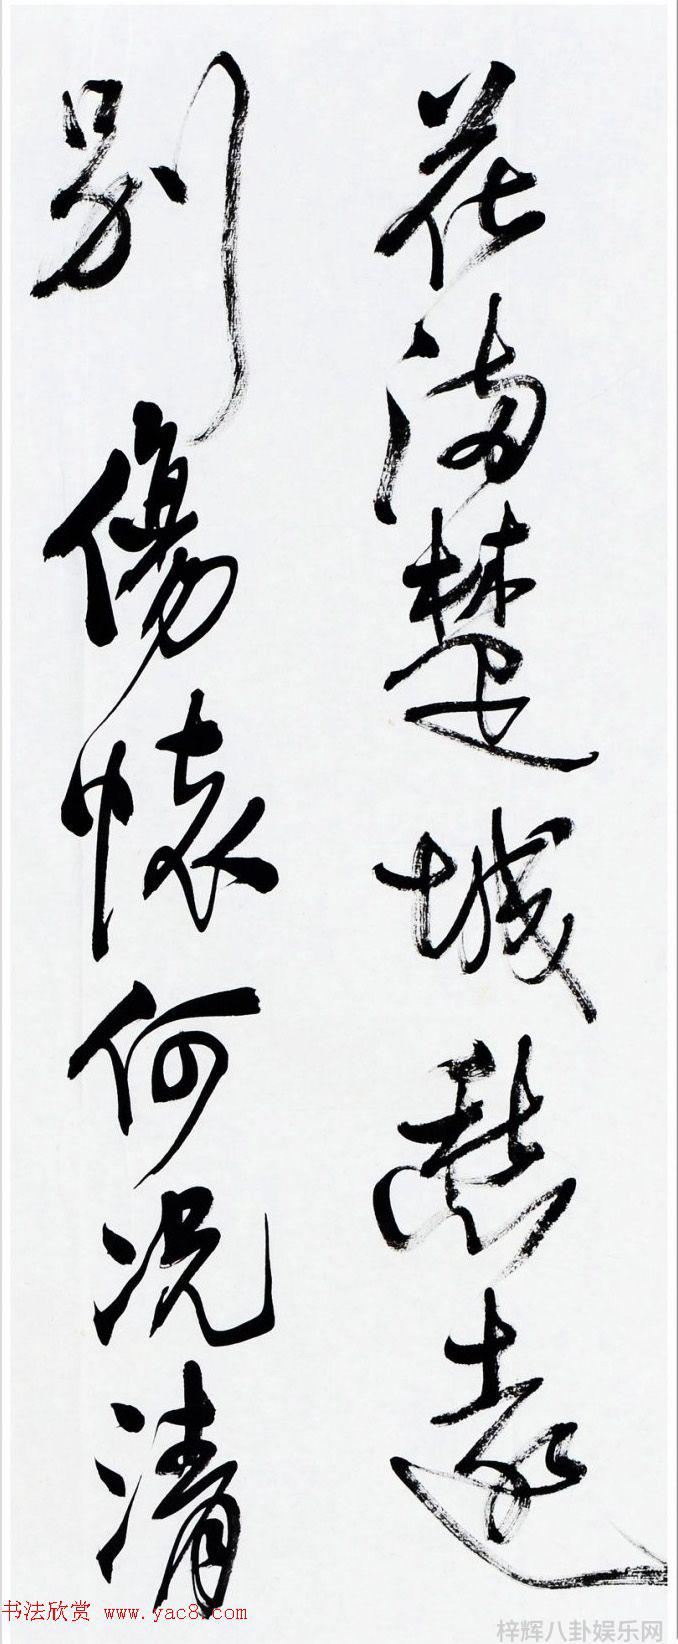 花满楚城愁远
别傷懷何况清
书法欣赏 www.yac8.com
梓辉八卦娱乐网